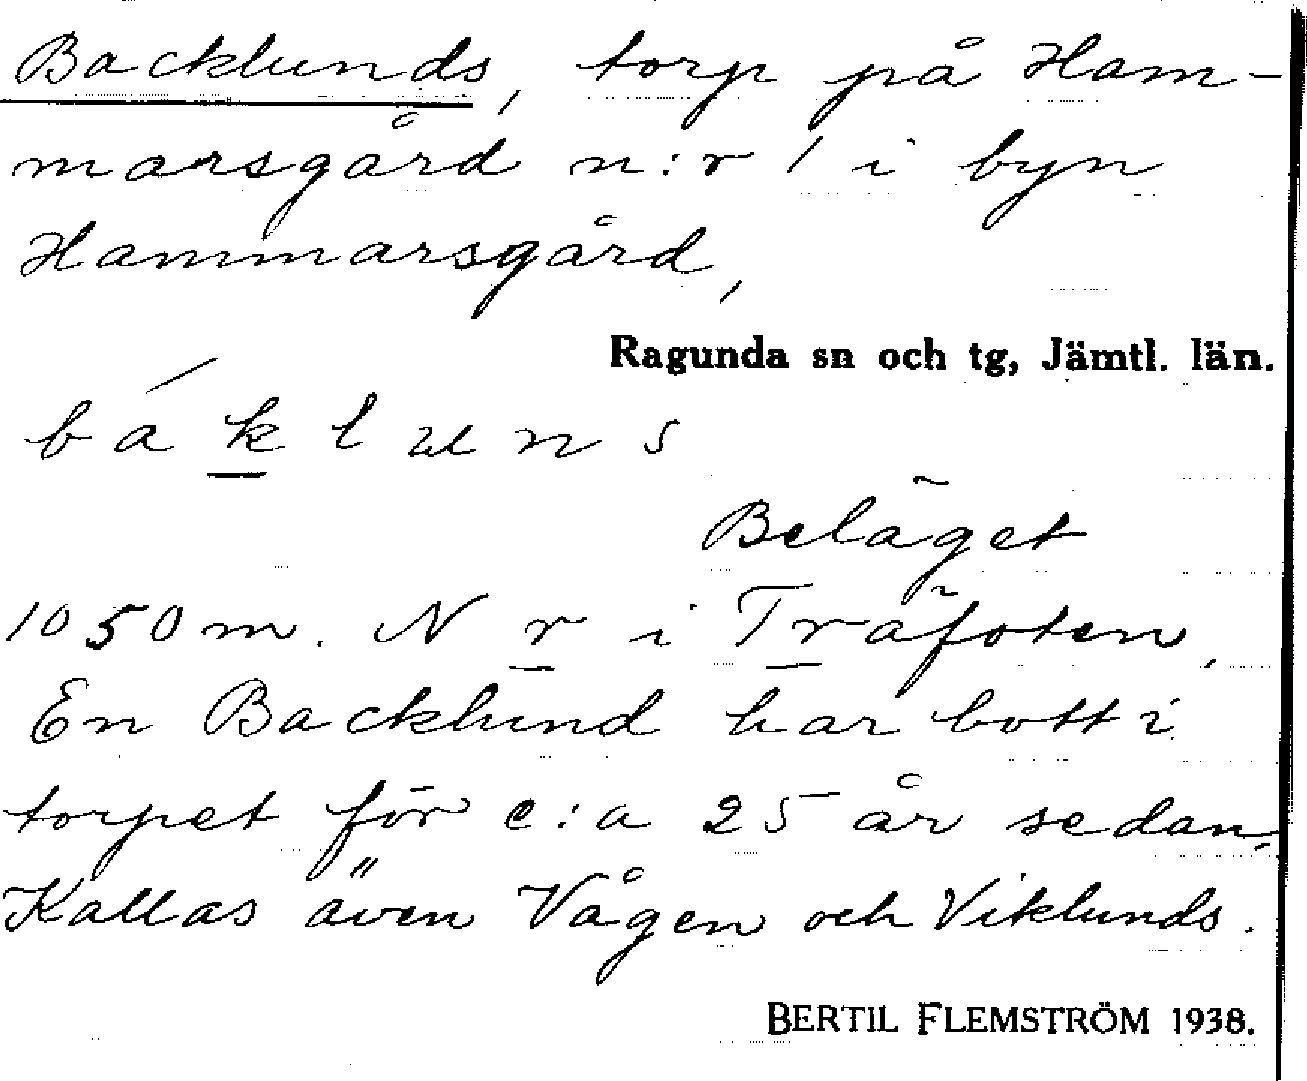 Backlunds, torp på Ham-
marsgård n:r 1 i byn
Hammarsgård,
Ragunda sn och tg, Jämtl. län.
bák̲luns
Beläget
1050 m. N r̲ i Tr̲äfoten,
En Backlund har bott i
torpet för c:a 25 år sedan.
Kallas även Vågen och Viklunds.
BERTIL FLEMSTRÖM 1938.